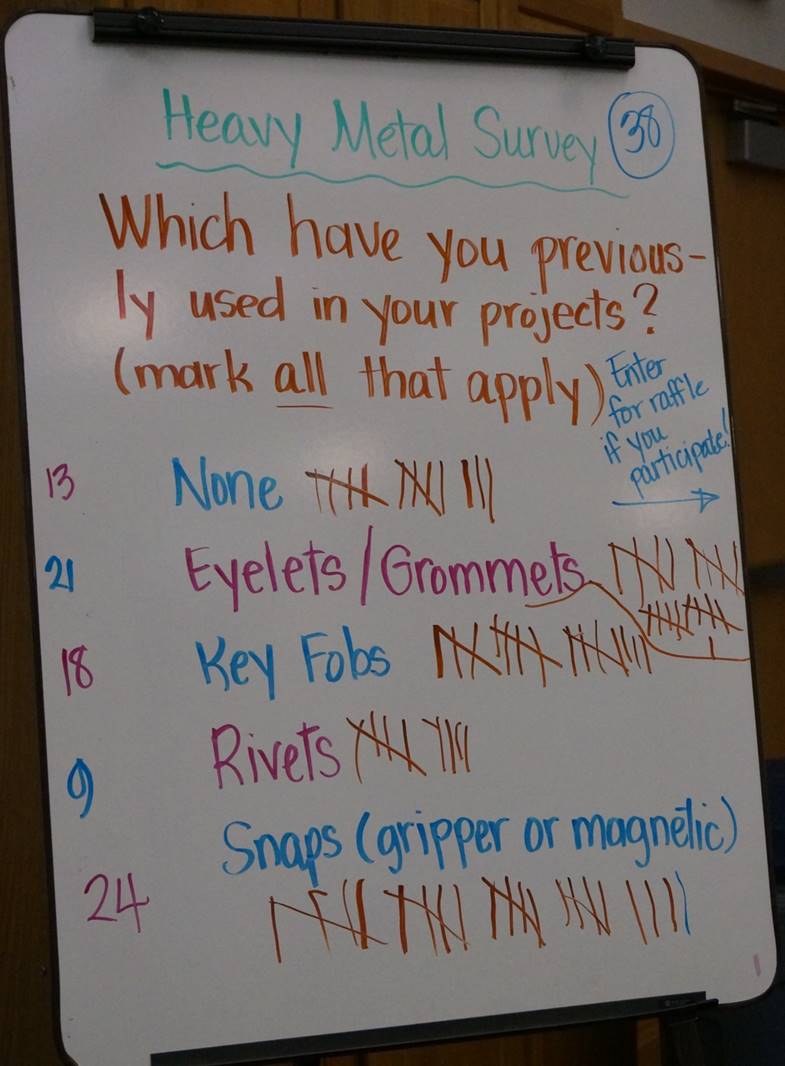 Heavy Metal Survey 38
Which have you previous-
ly used in your projects?
(mark all that apply)
Enter
for raffle
if you
participate!
13 None
21 Eyelets/Grommets
18 Key Fobs
9 Rivets
Snaps (gripper or magnetic)
24